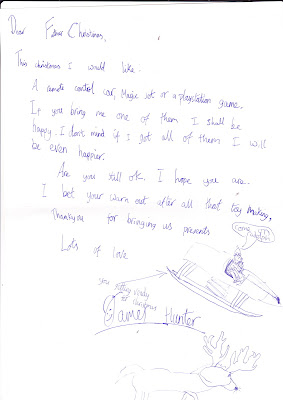 Dear Father Christmas,
This christmas I would like.
A remote control car, Magic set or a playstation game.
If you bring me one of them I shall be
happy. I don't mind if I got all of them I will
be even happier.
Are you still ok. I hope you are.
I bet your worn out after all that toy making.
Thankyou for bringing us presents
Lots of love
you getting ready
for christmas
James Hunter